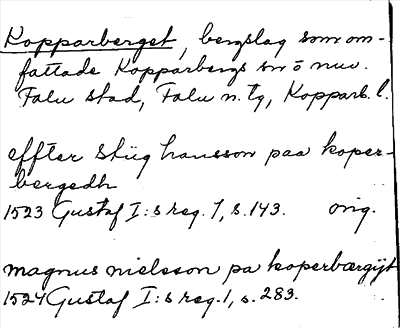 Kopparberget, bergslag som om-
fattade Kopparbergs sn o nuv.
Falu stad, Falu n. tg, Kopparb. l.
effter Stiig hansson paa koper-
bergedh
1523 Gustaf I:s reg. 1, s. 143. orig.
magnus nielsson pa koperbærgijt
1524 Gustaf I:s reg. 1, s. 283.